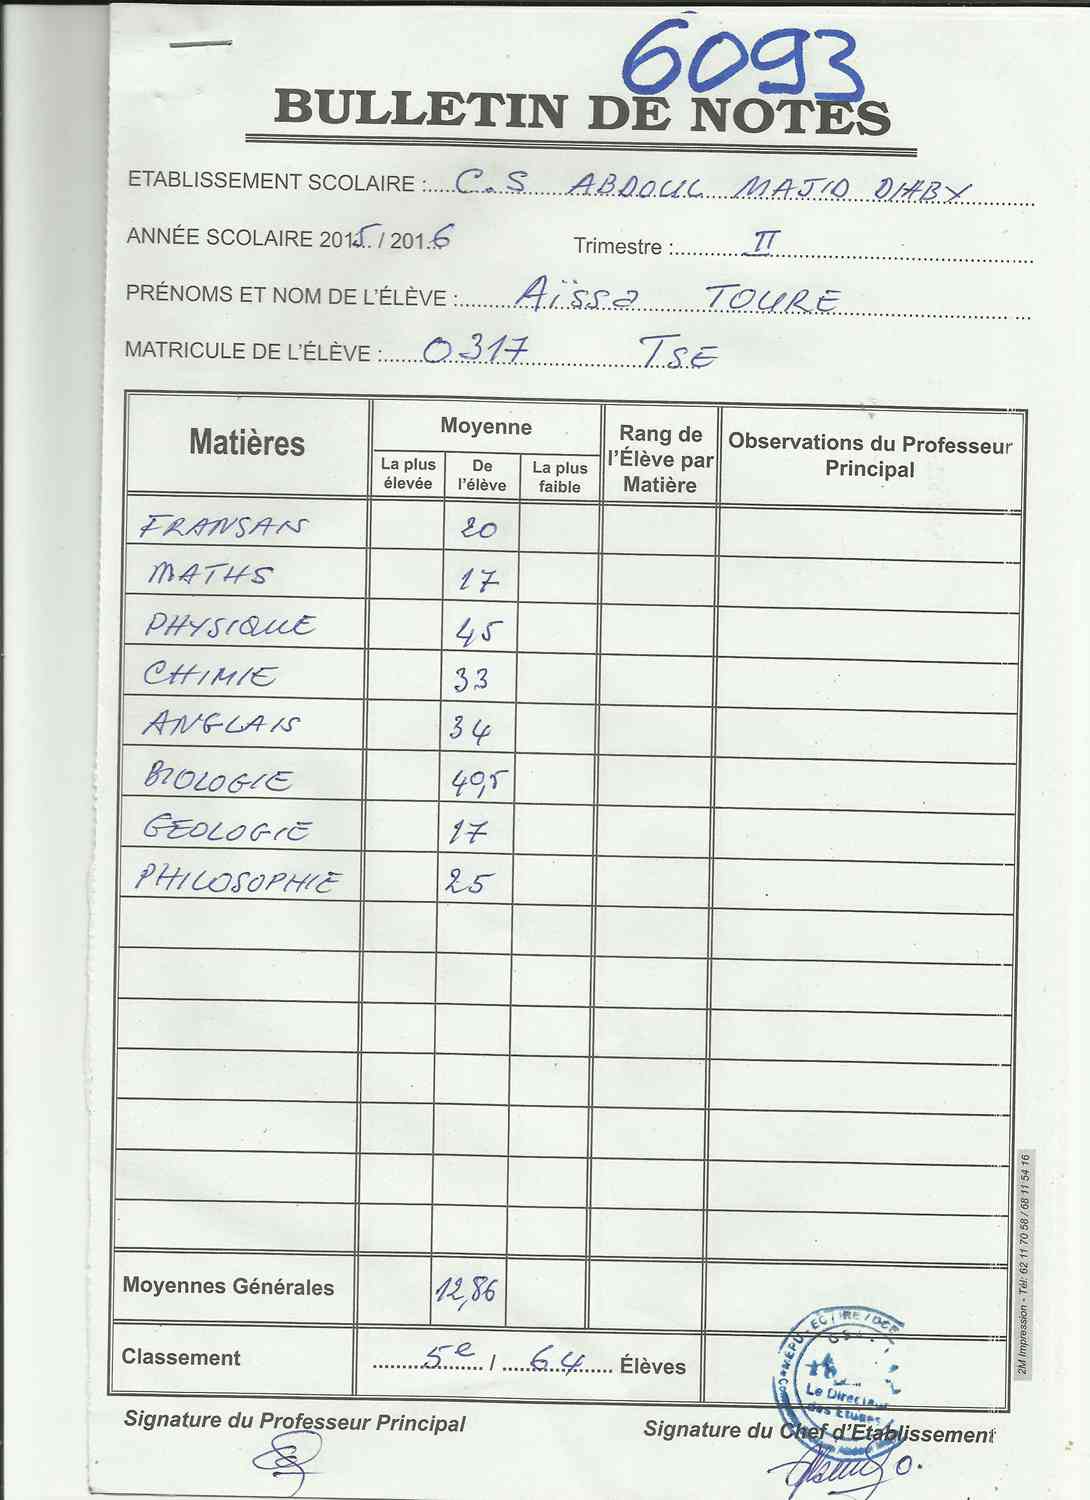 6093
BULLETIN DE NOTES
ETABLISSEMENT SCOLAIRE : C.S ABDOUL MAJID DIABY
ANNÉE SCOLAIRE 2015 / 2016 Trimestre : II
PRÉNOMS ET NOM DE L'ÉLÈVE : Aïssa TOURE
MATRICULE DE L'ÉLÈVE : 0317 TSE
Matières Moyenne Rang de l'Élève par Matière Observations du Professeur Principal
La plus élevée De l'élève La plus faible
FRANSAIS 20
MATHS 17
PHYSIQUE 45
CHIMIE 33
ANGLAIS 34
BIOLOGIE 40,5
GEOLOGIE 17
PHILOSOPHIE 25
Moyennes Générales 12,86
Classement 5e / 64 Élèves
Le Directeur
des Etudes
Signature du Professeur Principal Signature du Chef d'Etablissement
2M Impression - Tél: 62 11 70 58 / 68 11 54 16